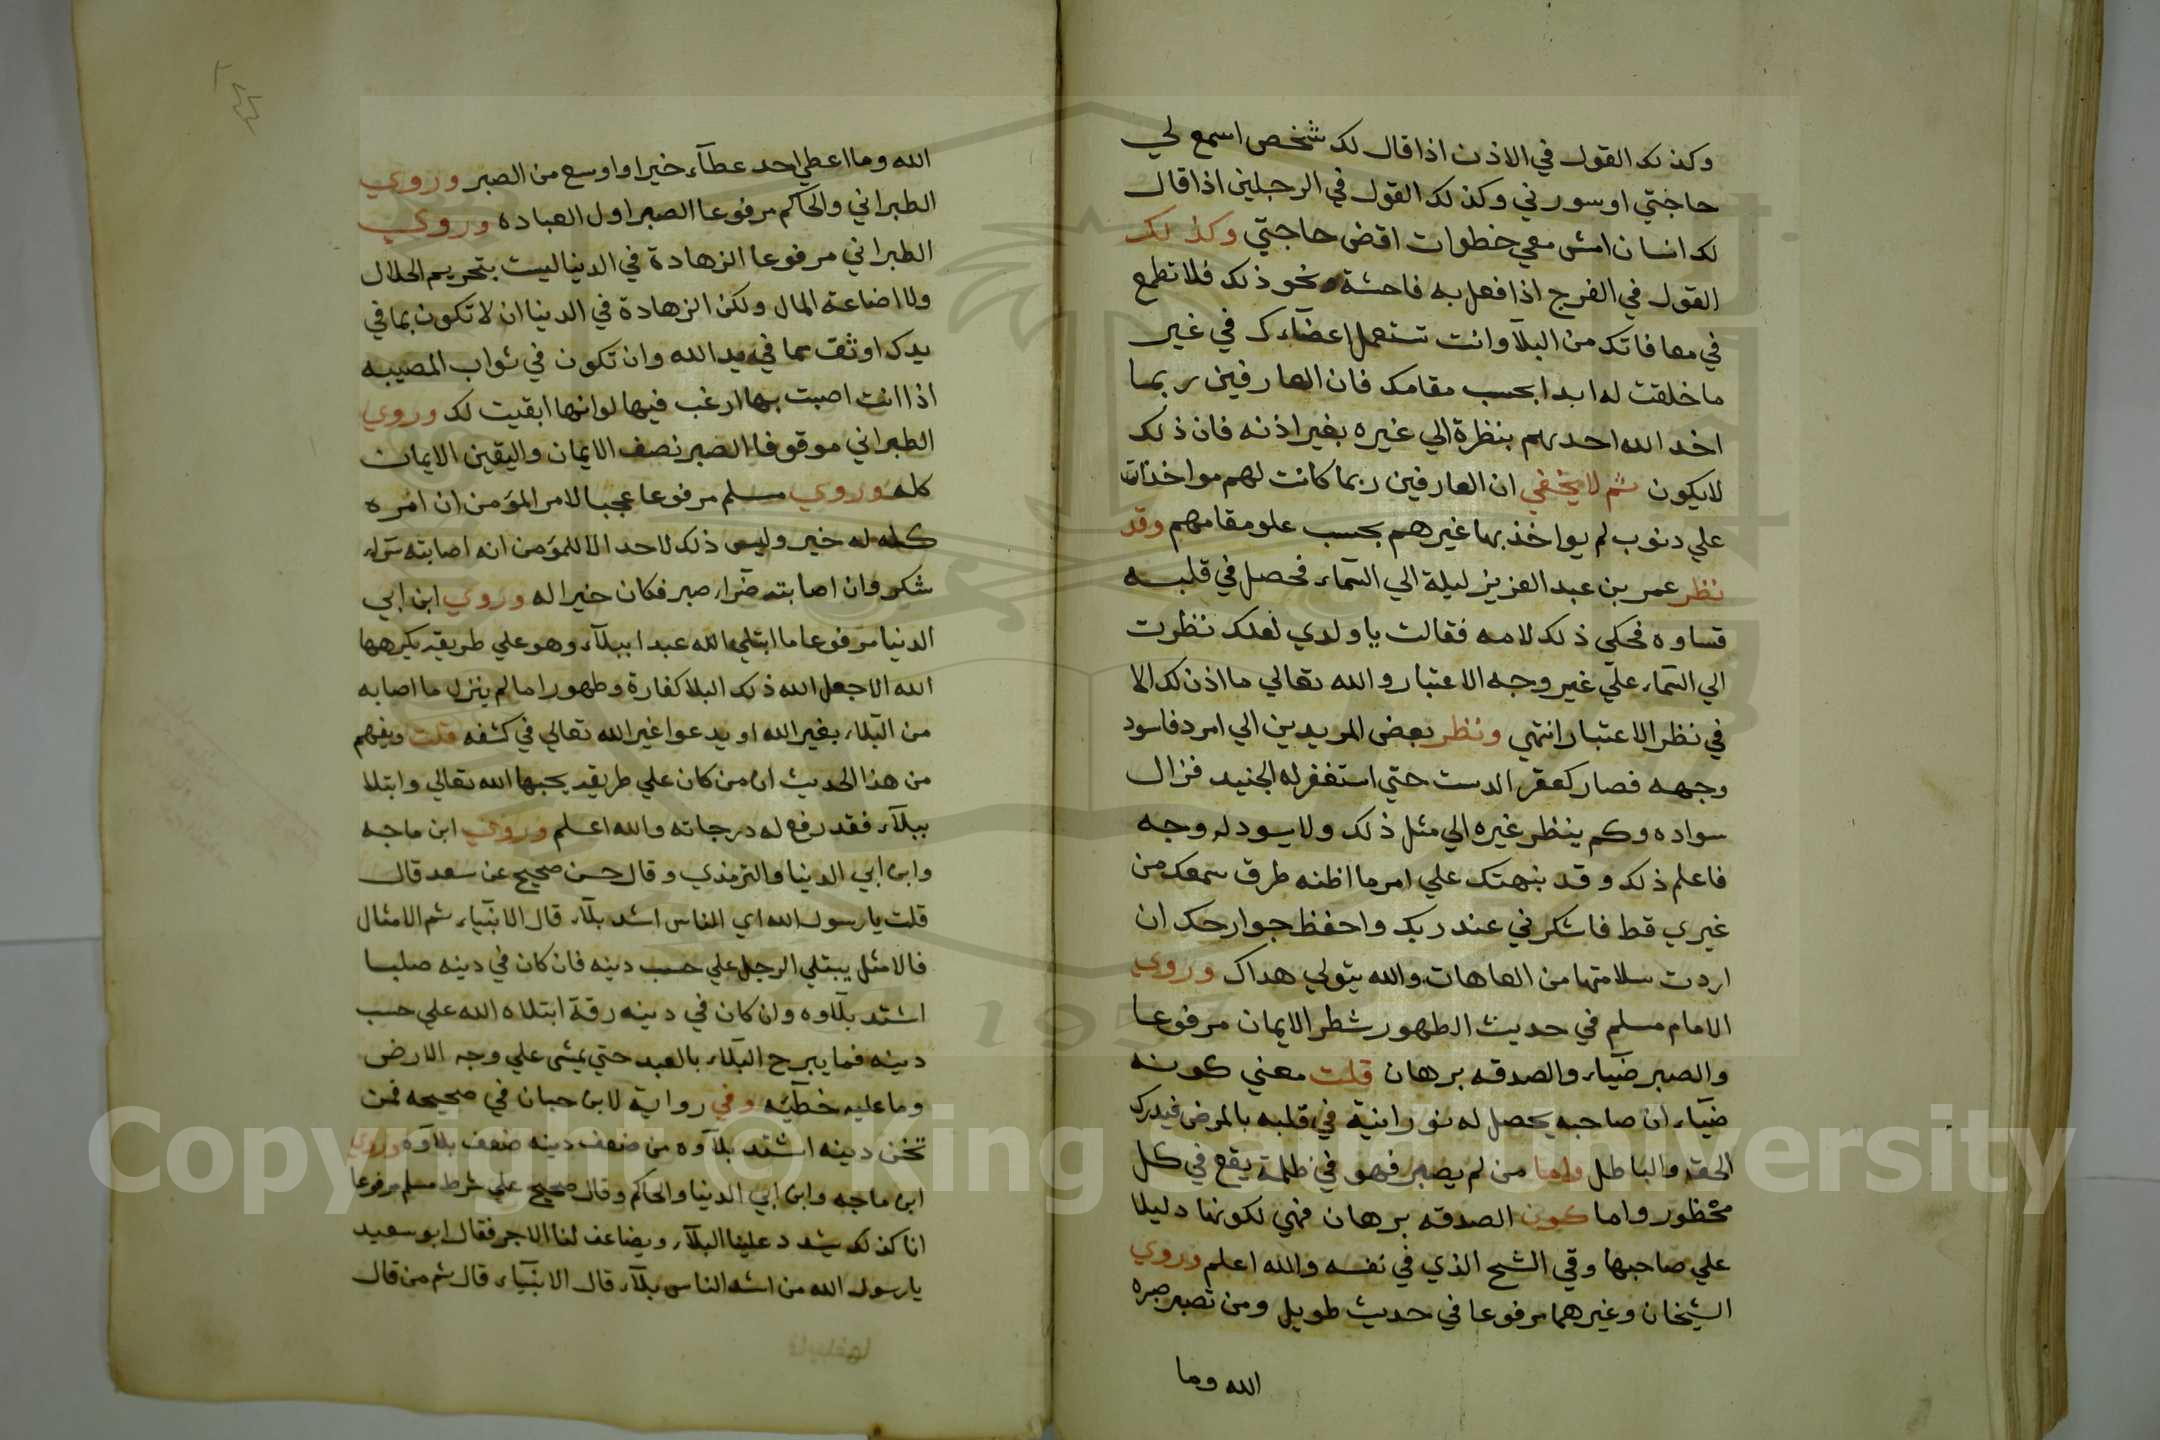 وكذلك القول في الاذن اذا قال لك شخص اسمع لي
حاجتي او سورني وكذلك القول في الرجلين اذا قال
لك انسان امش معي خطوات اقض حاجتي وكذلك
القول في الفرج اذا فعل به فاحشة ونحو ذلك فلا تطمع
في معافاتك من البلآ وانت تستعمل اعضآءك في غير
ما خلقت له ابدا بحسب مقامك فان العارفين ربما
اخد الله احدهم بنظرة الي غيره بغير اذنه فان ذلك
لا يكون ثم لا يخفي ان العارفين ربما كانت لهم مواخذات
علي دنوب لم يواخذ بها غيرهم بحسب علو مقامهم وقد
نظر عمر بن عبد العزيز ليلة الي السمآء فحصل في قلبه
قساوه فحكي ذلك لامه فقالت يا ولدي لعلك نظرت
الي السمآء علي غير وجه الاعتبار والله تعالي ما اذن لك الا
في نظر الاعتبار انتهي ونظر بعض المريدين الي امرد فاسود
وجهه فصار كعقر الدست حتي استغفر له الجنيد فزال
سواده وكم ينظر غيره الي مثل ذلك ولا يسود له وجه
فاعلم ذلك وقد بنهتك علي امر ما اظنه طرق سمعك من
غيري قط فاشكرني عند ربك واحفظ جوارحك ان
اردت سلامتها من العاهات والله يتولي هداك وروي
الامام مسلم في حديث الطهور شطر الايمان مرفوعا
والصبر ضيآء والصدقه برهان قلت معني كونه
ضيآء ان صاحبه يحصل له نورانية في قلبه بالمرض فيدرك
الحق والباطل واما من لم يصبر فهو في ظلمة يقع في كل
محظور واما كون الصدقه برهان فهي لكونها دليلا
علي صاحبها وقي الشح الذي في نفسه والله اعلم وروي
الشيخان وغيرهما مرفوعا في حديث طويل ومن تصبر صبره
الله وما
الله وما اعطي احد عطآء خيرا واوسع من الصبر وروي
الطبراني والحاكم مرفوعا الصبر اول العباده وروي
الطبراني مرفوعا الزهادة في الدنيا ليست بتحريم الحلال
ولا اضاعته المال ولكن الزهادة في الدنيا ان لا تكون بما في
يدك اوثق مما في يد الله وان تكون في ثواب المصيبه
اذا انت اصبت بها ارغب فيها لو انها ابقيت لك وروي
الطبراني موقوفا الصبر نصف الايمان واليقين الايمان
كله وروي مسلم مرفوعا عجبا لامر المؤمن ان امره
كله له خير وليس ذلك لاحد الا للمؤمن انه اصابته سرآء
شكر وان اصابته ضرآء صبر فكان خيرا له وروي ابن ابي
الدنيا مرفوعا ما ابتلي الله عبدا ببلآء وهو علي طريقه يكرهها
الله الا جعل الله ذلك البلا كفارة وطهورا ما لم ينزل ما اصابه
من البلآء بغير الله او يدعوا غير الله تعالي في كشفه قلت ويفهم
من هذا الحديث ان من كان علي طريقه يحبها الله تعالي وابتلا
ببلآء فقد رفع له درجاته والله اعلم وروي ابن ماجه
وابن ابي الدنيا والترمذي وقال حسن صحيح عن سعد قال
قلت يا رسول الله اي الناس اشد بلآء قال الانبيآء ثم الامثال
فالامثل يبتلي الرجل علي حسب دينه فان كان في دينه صلبا
اشتد بلآوه وان كان في دينه رقة ابتلاه الله علي حسب
دينه فما يبرح البلآء بالعبد حتي يمشى علي وجه الارض
وما عليه خطيئه وفي رواية لابن حبان في صحيحه فمن
تخن دينه اشتد بلآوه من ضعف دينه ضعف بلآوه وروي
ابن ماجه وابن ابي الدنيا والحاكم وقال صحيح علي شرط مسلم مرفوعا
انا كذلك يشدد علينا البلآء ويضاعف لنا الاجر فقال ابو سعيد
يا رسول الله من اشد الناس بلآء قال الانبيآء قال ثم من قال
Copyright © King Saud University